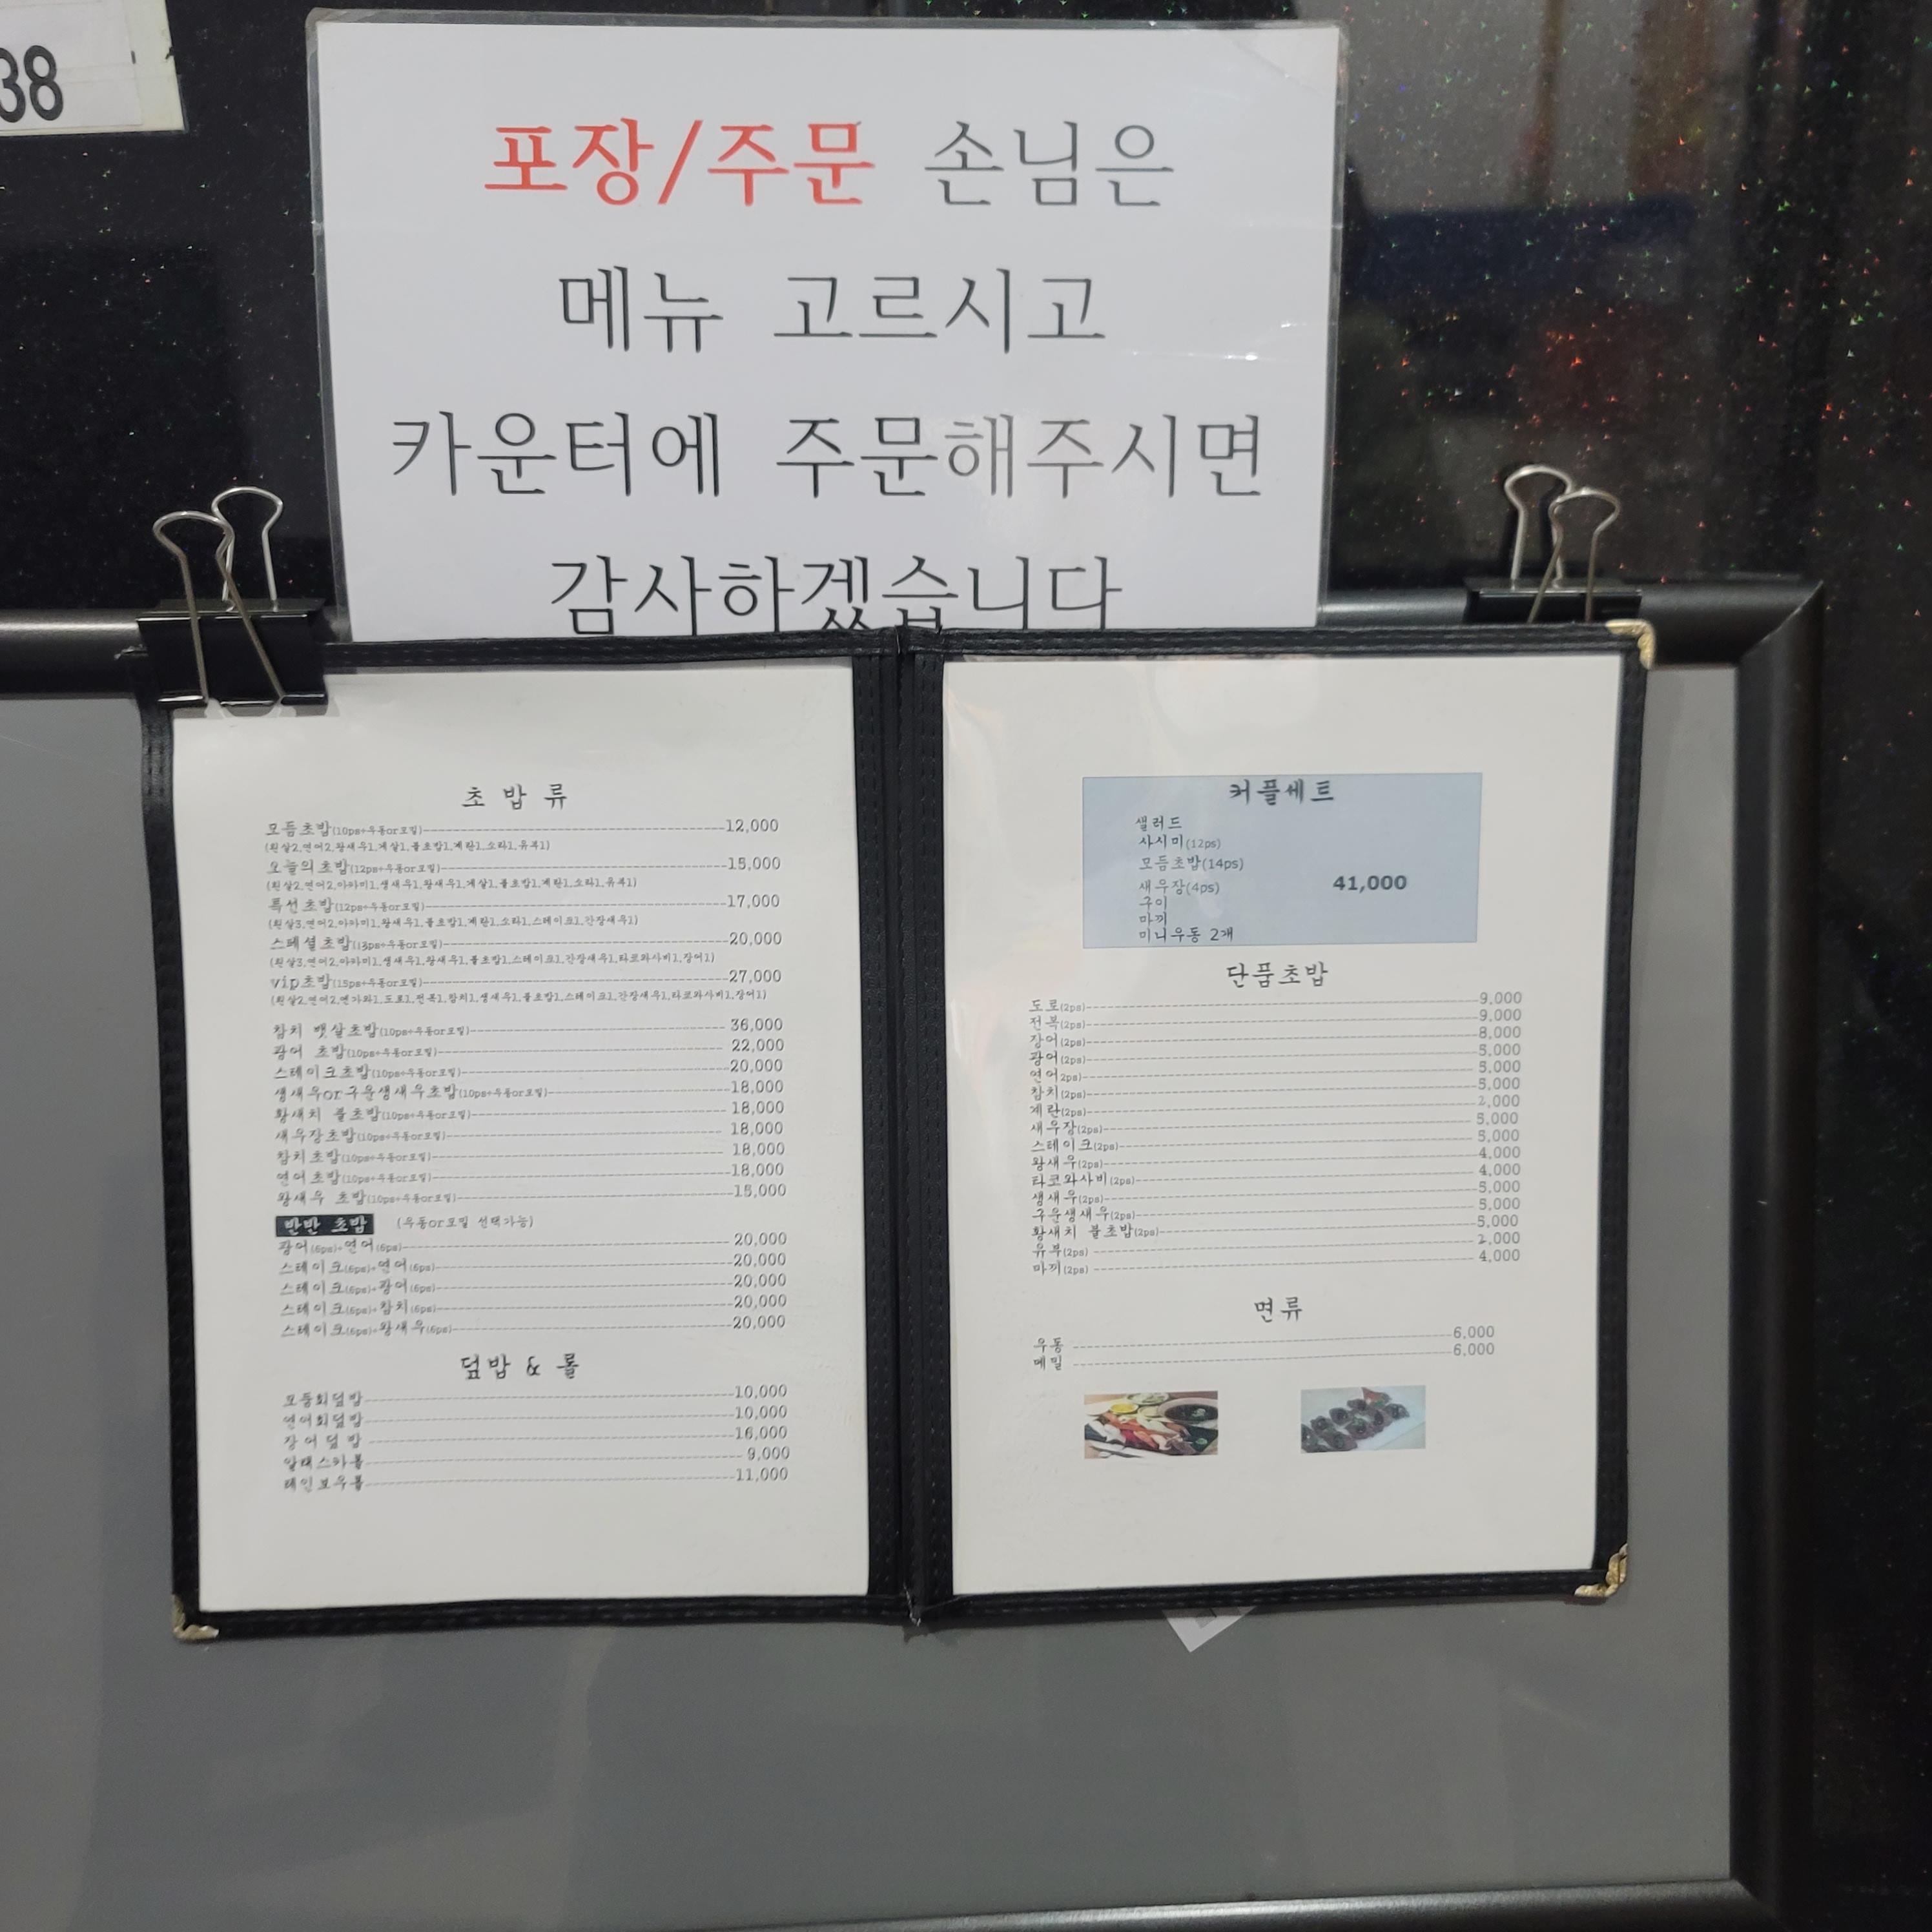 38
포장/주문 손님은
메뉴 고르시고
카운터에 주문해주시면
감사하겠습니다
초밥류
모듬초밥(10ps+우동or모밀) 12,000
(흰살2.연어2.왕새우1.게살1.불초밥1.계란1.소라1.유부1)
오늘의초밥(12ps+우동or모밀) 15,000
(흰살2.연어2.아카미1.생새우1.왕새우1.게살1.불초밥1.계란1.소라1.유부1)
특선초밥(12ps+우동or모밀) 17,000
(흰살3.연어2.아까미1.왕새우1.불초밥1.계란1.소라1.스테이크1.간장새우1)
스페셜초밥(13ps+우동or모밀) 20,000
(흰살3.연어2.아까미1.생새우1.왕새우1.불초밥1.스테이크1.간장새우1.타코와사비1.장어1)
vip초밥(15ps+우동or모밀) 27,000
(흰살2.연어2.엔가와1.도로1.전복1.참치1.생새우1.불초밥1.스테이크1.간장새우1.타코와사비1.장어1)
참치 뱃살초밥(10ps+우동or모밀) 36,000
광어 초밥(10ps+우동or모밀) 22,000
스테이크초밥(10ps+우동or모밀) 20,000
생새우or구운생새우초밥(10ps+우동or모밀) 18,000
황새치 불초밥(10ps+우동or모밀) 18,000
새우장초밥(10ps+우동or모밀) 18,000
참치초밥(10ps+우동or모밀) 18,000
연어초밥(10ps+우동or모밀) 18,000
왕새우 초밥(10ps+우동or모밀) 15,000
반반 초밥 (우동or모밀 선택가능)
광어(6ps)+연어(6ps) 20,000
스테이크(6ps)+연어(6ps) 20,000
스테이크(6ps)+광어(6ps) 20,000
스테이크(6ps)+참치(6ps) 20,000
스테이크(6ps)+왕새우(6ps) 20,000
덮밥 & 롤
모듬회덮밥 10,000
연어회덮밥 10,000
장어덮밥 16,000
알래스카롤 9,000
레인보우롤 11,000
커플세트
샐러드
사시미(12ps)
모듬초밥(14ps)
새우장(4ps) 41,000
구이
마끼
미니우동 2개
단품초밥
도로(2ps) 9,000
전복(2ps) 9,000
장어(2ps) 8,000
광어(2ps) 5,000
연어2ps) 5,000
참치(2ps) 5,000
계란(2ps) 2,000
새우장(2ps) 5,000
스테이크(2ps) 5,000
왕새우(2ps) 4,000
타코와사비(2ps) 4,000
생새우(2ps) 5,000
구운생새우(2ps) 5,000
황새치 불초밥(2ps) 5,000
유부(2ps) 2,000
마끼(2ps) 4,000
면류
우동 6,000
메밀 6,000